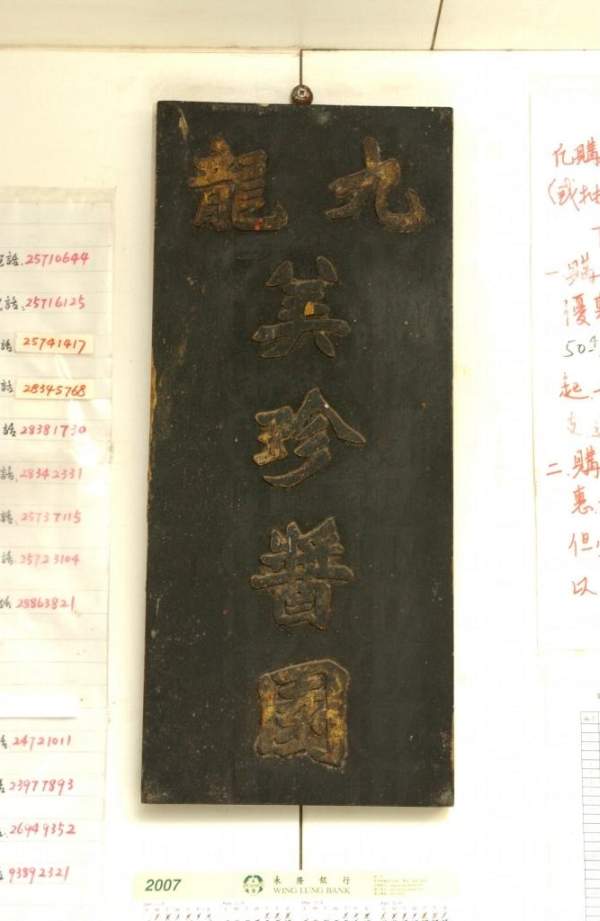 九龍
美珍醬園
話.25710644
話.25716125
話 25741417
話 28345768
話 28381730
話.28342331
話.25737115
話.25723104
28863821
24721011
23977893
26949352
93892321
化購
(或批
一.購
優惠
50
起
二.購
惠
但
以
2007
永隆銀行
WING LUNG BANK